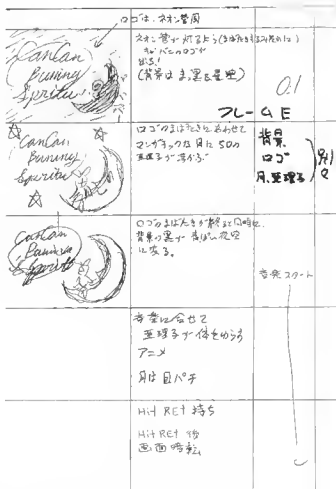 ロゴは、ネオン管風
CanCan
Bunny
Spiritus
ネオン管が灯るよう(またたきながら)に
出る!
(背景はまっ黒&星空)
0:1
フレーム E
CanCan
Bunny
Spiritus
ロゴのまばたきにあわせて
マンガチックな月に
亜理子が浮かぶ
背景
ロゴ
月、亜理子
別々
CanCan
Bunny
Spiritus
ロゴのまばたきが終ると同時に
背景の黒が青っぽい夜空
になる。
音楽スタート
音楽に合せて
亜理子が体をゆらす
アニメ
月は目パチ
Hit RET 待ち
Hit RET 後
画面暗転